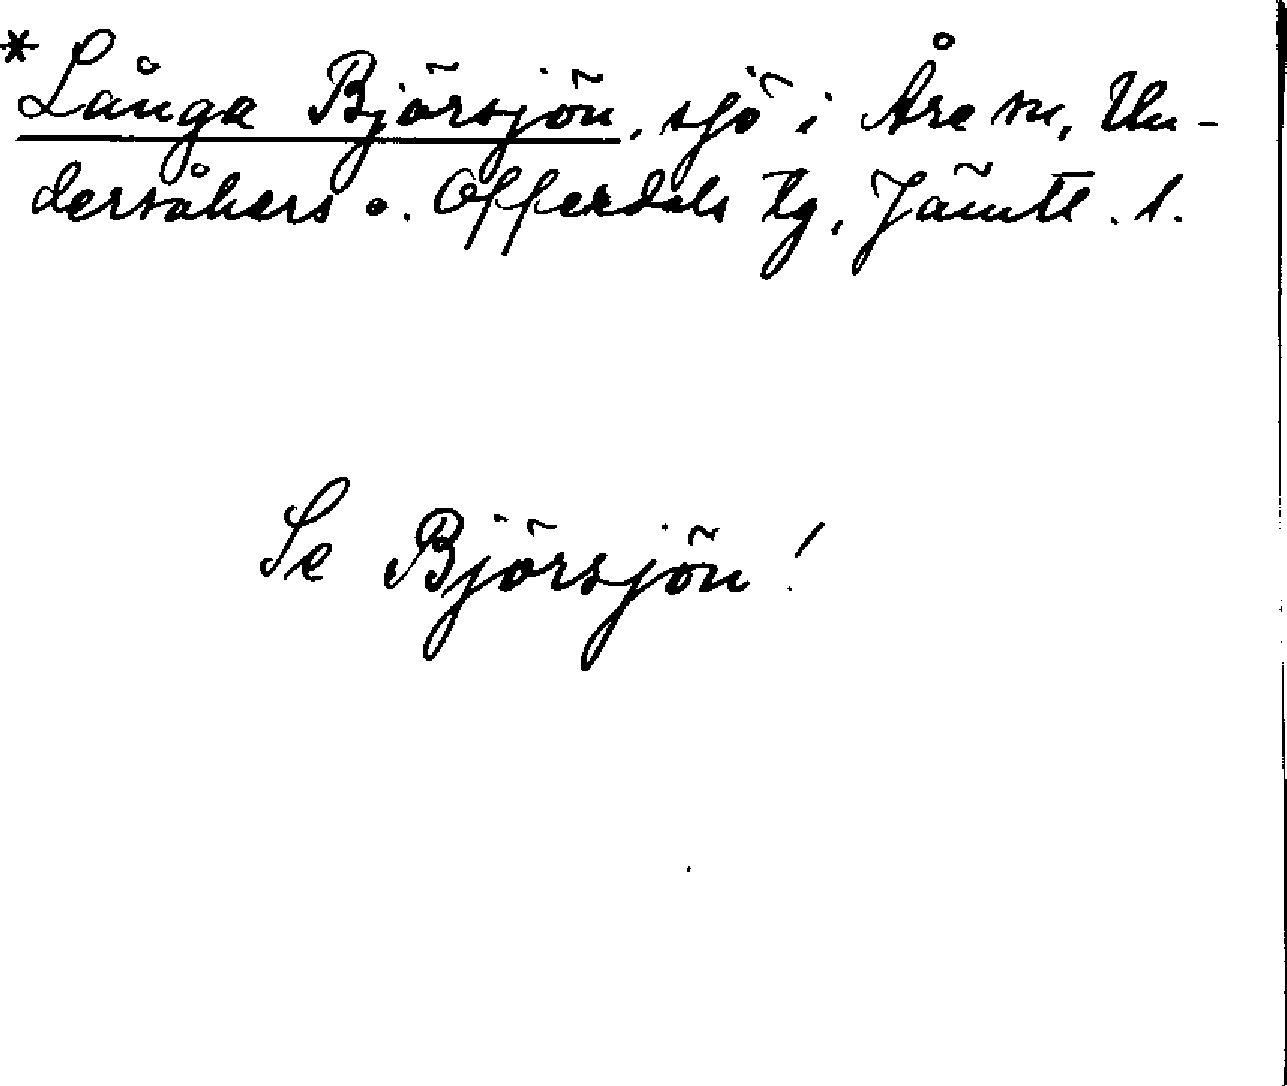 * Långa Björsjön, sjö i Åre sn, Un-
dersåkers o. Offerdals tg, Jämtl. l.
Se Björsjön!